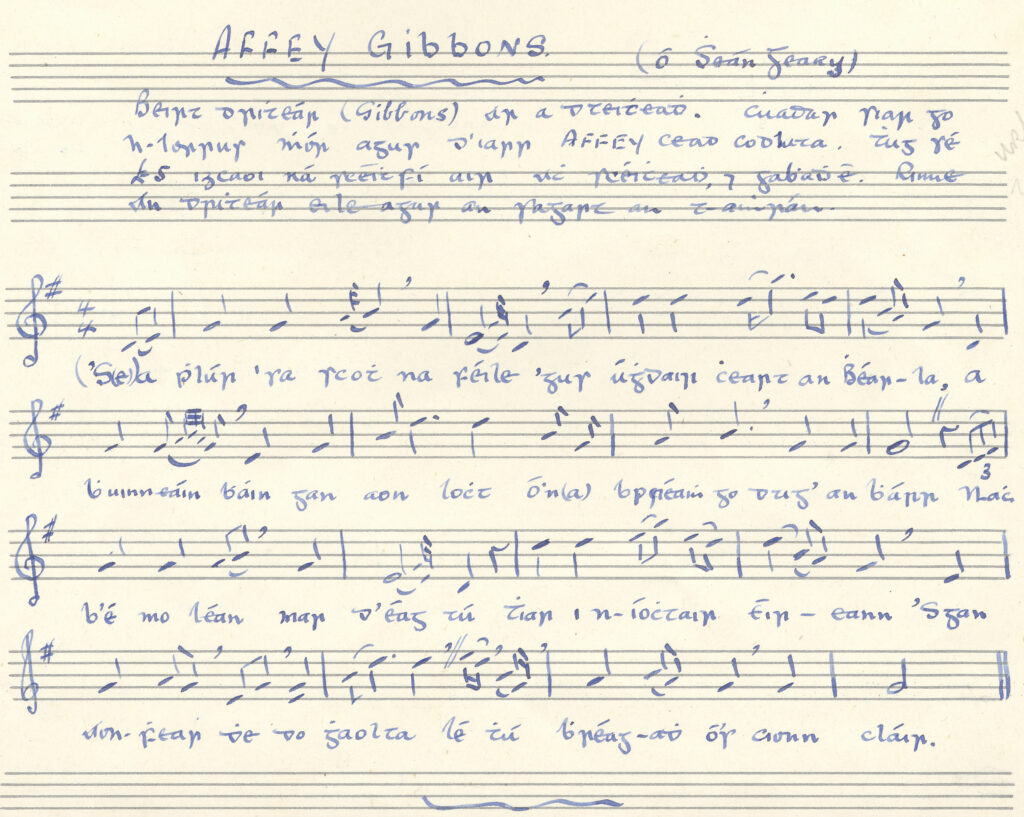 AFFEY Gibbons.
(ó Ṡeán Geary)
Beirt driṫeár (Gibbons) ar a dteiṫeaḋ. Ċuadar siar go
n-Iorrus ṁór agus d'iarr AFFEY cead codlata. Ṫug sé
£5 ná sceiṫfí air sceiṫeaḋ, ⁊ gabaḋ é. Rinne
An driṫeár eile agus an sagart an t-aṁrán.
4 4
('S(e))a ṗlúr 'sa scoṫ na féile 'gus úġdair ċeart an Ḃéar-la, a
ḃuinneáin ḃáin gan aon loċt ó'n(a) ḃfréaṁ go dtug' an ḃárr Naċ
3
b'é mo léan mar d'éag tú ṫiar i n-íoċtair Éir-eann 'Sgan
Aon-ḟear de do ġaolta lé ṫú ḃréag-aḋ ó's cionn cláir.